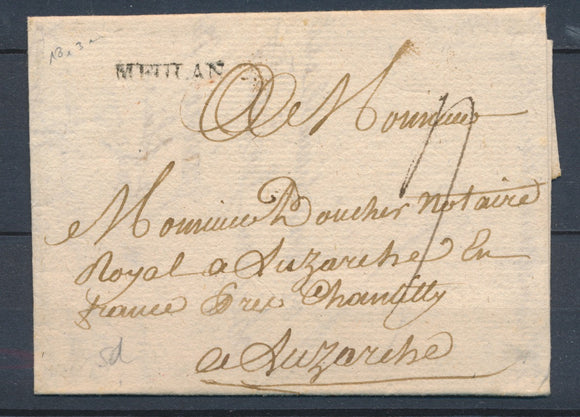 MEULAN
A Monsieur
Monsieur Boucher notaire
Royal a Luzarche En
france Pres Chantilly
a Luzarche